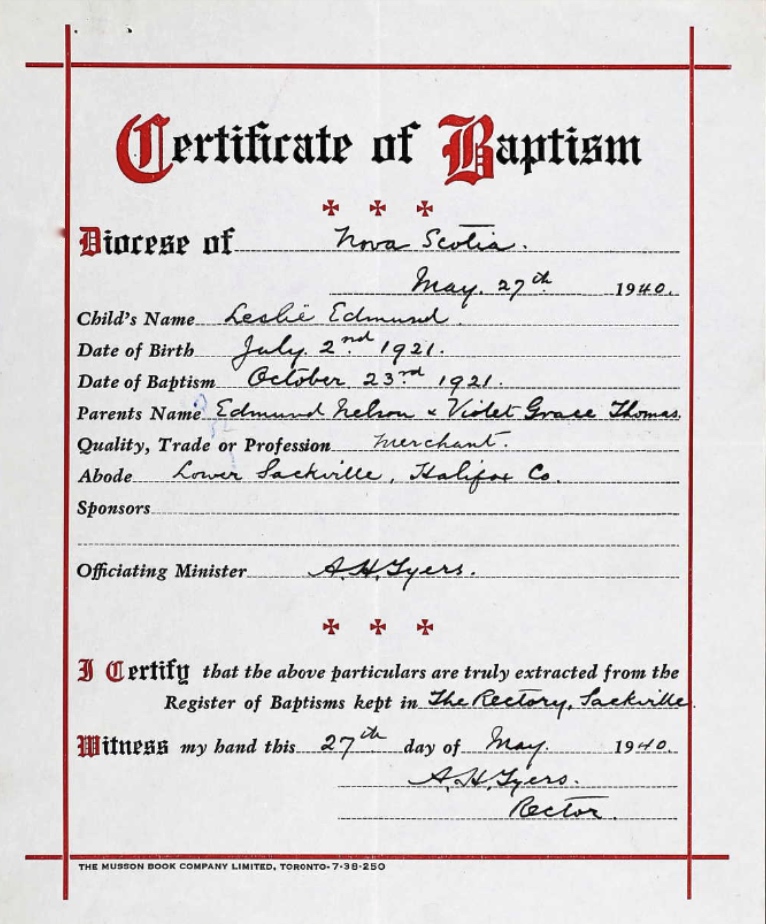 Certificate of Baptism
Diocese of Nova Scotia.
May. 27th 1940.
Child's Name Leslie Edmund.
Date of Birth July. 2nd 1921.
Date of Baptism October 23rd 1921.
Parents Name Edmund Nelson & Violet Grace Thomas.
Quality, Trade or Profession Merchant.
Abode Lower Sackville, Halifax Co.
Sponsors
Officiating Minister A.H. Tyers.
I Certify that the above particulars are truly extracted from the
Register of Baptisms kept in The Rectory, Sackville.
Witness my hand this 27th day of May. 1940.
A.H. Tyers.
Rector.
THE MUSSON BOOK COMPANY LIMITED, TORONTO-7-38-250